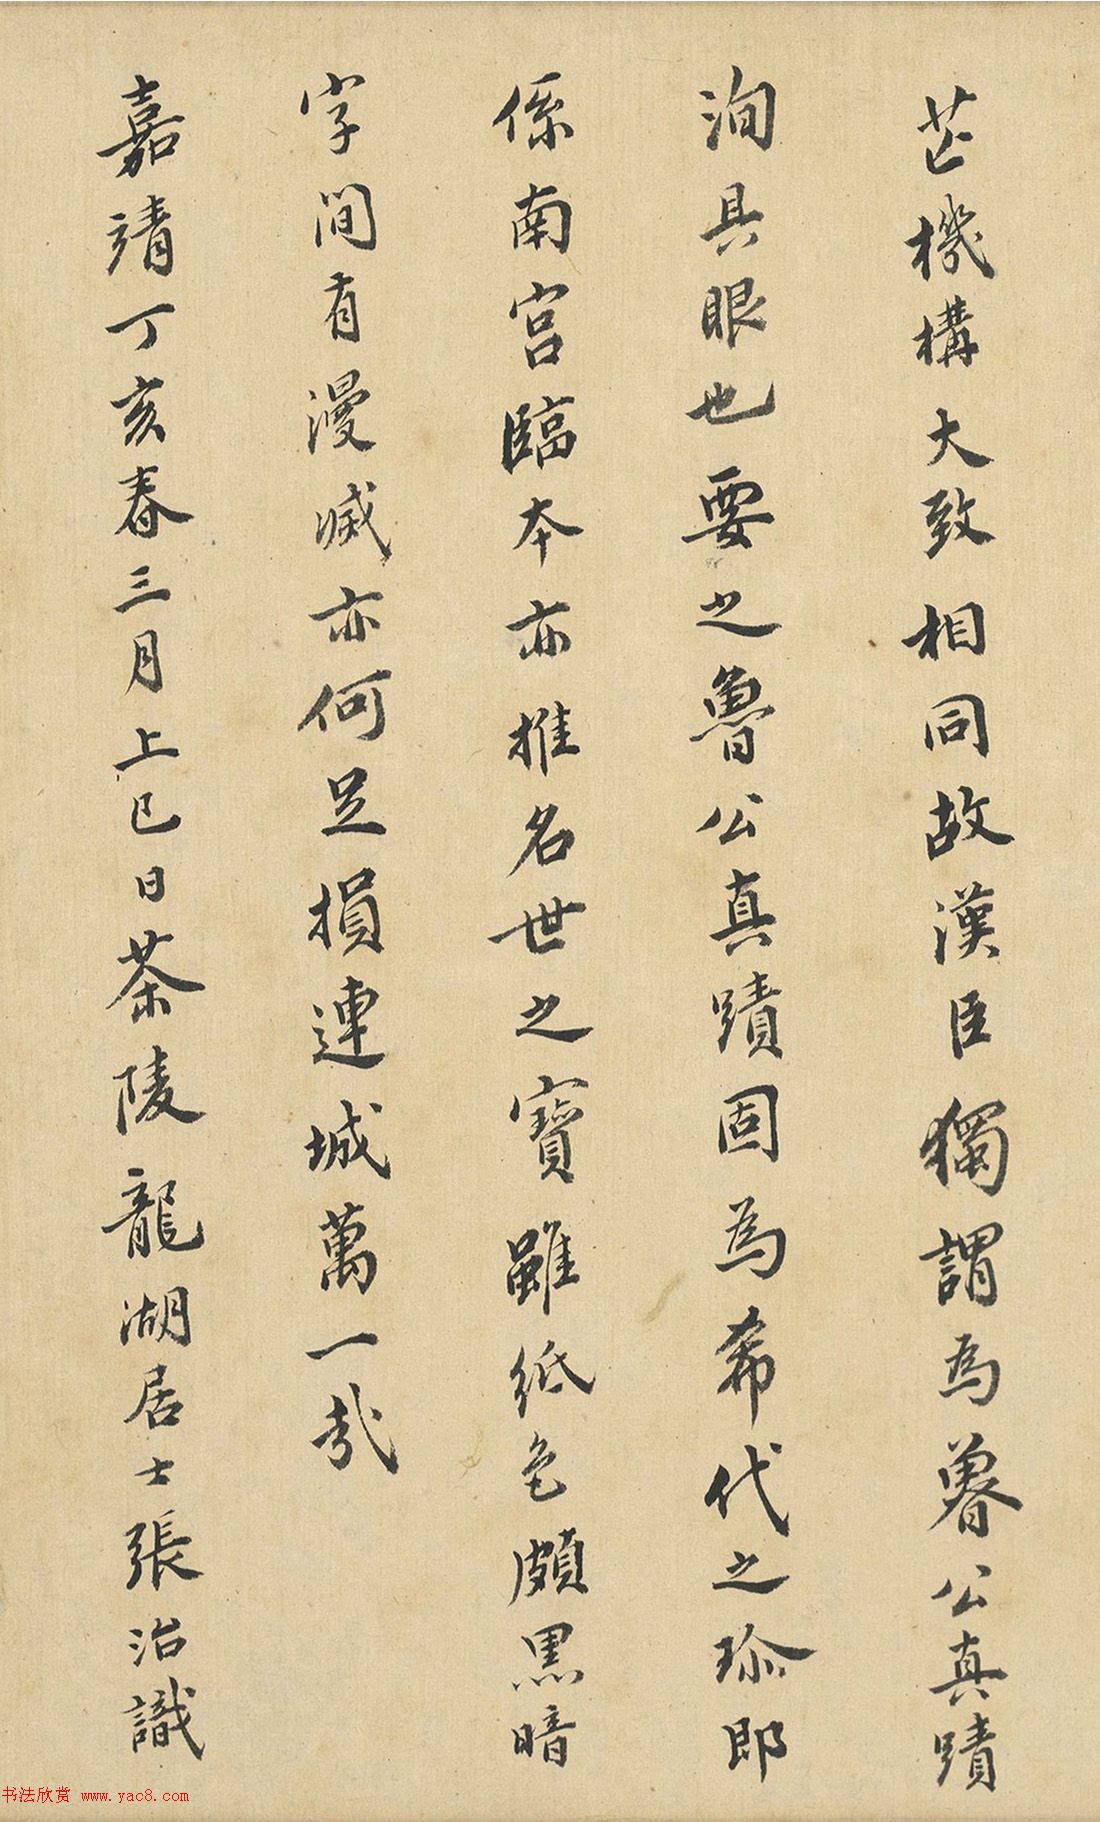 芒機構大致相同故漢臣獨謂為魯公真蹟
洵具眼也要之魯公真蹟固為希代之珍即
係南宮臨本亦推名世之寶雖紙色頗黑暗
字間有漫滅亦何足損連城萬一哉
嘉靖丁亥春三月上巳日茶陵龍湖居士張治識
书法欣赏 www.yac8.com